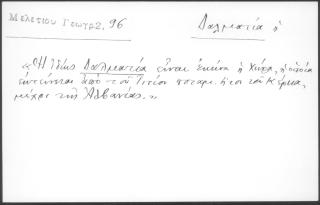 Μελετίου Γεωγρ. 96
Δαλματία ἡ
«Ἡ ἰδίως Δαλματία εἶναι ἐκείνη ἡ Χώρα, ἡ ὁποία
ἐκτείνεται ἀπὸ τοῦ Τιτίου ποταμ. ἤτοι τοῦ Κέρκα,
μέχρι τῆς Ἀλβανίας.»